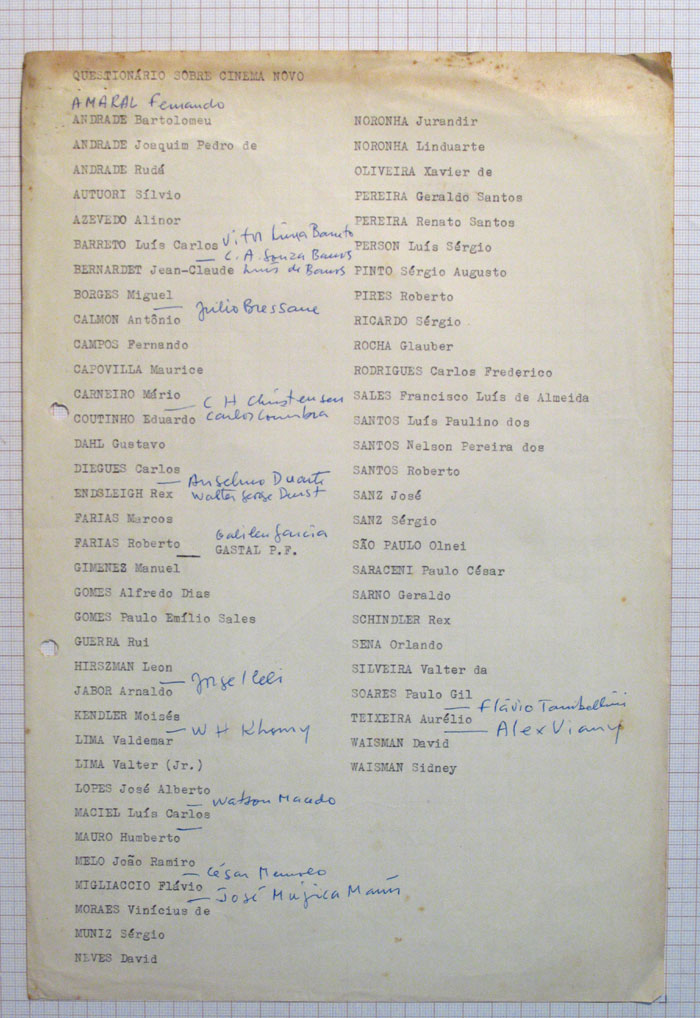 QUESTIONÁRIO SOBRE CINEMA NOVO
AMARAL Fernando
ANDRADE Bartolomeu
ANDRADE Joaquim Pedro de
ANDRADE Rudá
AUTUORI Sílvio
AZEVEDO Alinor
Vitor Lima Barreto
BARRETO Luís Carlos
C. A. Souza Barros
BERNARDET Jean-Claude Luis de Barros
BORGES Miguel
Julio Bressane
CALMON Antônio
CAMPOS Fernando
CAPOVILLA Maurice
CARNEIRO Mário
C H Christensen
COUTINHO Eduardo Carlos Coimbra
DAHL Gustavo
DIEGUES Carlos
Anselmo Duarte
ENDSLEIGH Rex Walter George Durst
FARIAS Marcos
Galileu Garcia
FARIAS Roberto GASTAL P.F.
GIMENEZ Manuel
GOMES Alfredo Dias
GOMES Paulo Emílio Sales
GUERRA Rui
HIRSZMAN Leon
Jorge Ileli
JABOR Arnaldo
KENDLER Moisés
W H Khoury
LIMA Valdemar
LIMA Valter (Jr.)
LOPES José Alberto
Watson Macedo
MACIEL Luís Carlos
MAURO Humberto
MELO João Ramiro
César 
MIGLIACCIO Flávio
José Mojica Marins
MORAES Vinícius de
MUNIZ Sérgio
NEVES David
NORONHA Jurandir
NORONHA Linduarte
OLIVEIRA Xavier de
PEREIRA Geraldo Santos
PEREIRA Renato Santos
PERSON Luís Sérgio
PINTO Sérgio Augusto
PIRES Roberto
RICARDO Sérgio
ROCHA Glauber
RODRIGUES Carlos Frederico
SALES Francisco Luís de Almeida
SANTOS Luís Paulino dos
SANTOS Nelson Pereira dos
SANTOS Roberto
SANZ José
SANZ Sérgio
SÃO PAULO Olnei
SARACENI Paulo César
SARNO Geraldo
SCHINDLER Rex
SENA Orlando
SILVEIRA Valter da
SOARES Paulo Gil
Flávio Tambellini
TEIXEIRA Aurélio
Alex Viany
WAISMAN David
WAISMAN Sidney